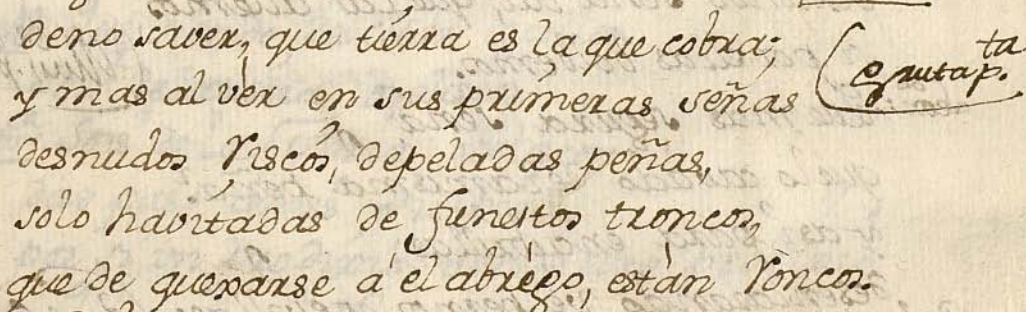 deno saver, que tierra es la que cobra;
y mas al vèr en sus primeras señas
desnudos riscos, depeladas peñas,
solo havitadas de funestos troncos,
que de quexarse á el abrégo, están roncos.
gruta p.ta